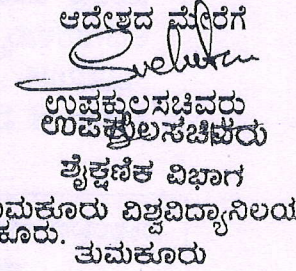 ಆದೇಶದ ಮೇರೆಗೆ
ಉಪಕುಲಸಚಿವರು
ಉಪಕುಲಸಚಿವರು
ಶೈಕ್ಷಣಿಕ ವಿಭಾಗ
ುಮಕೂರು ವಿಶ್ವವಿದ್ಯಾನಿಲಯ
ಕೂರು.
ತುಮಕೂರು